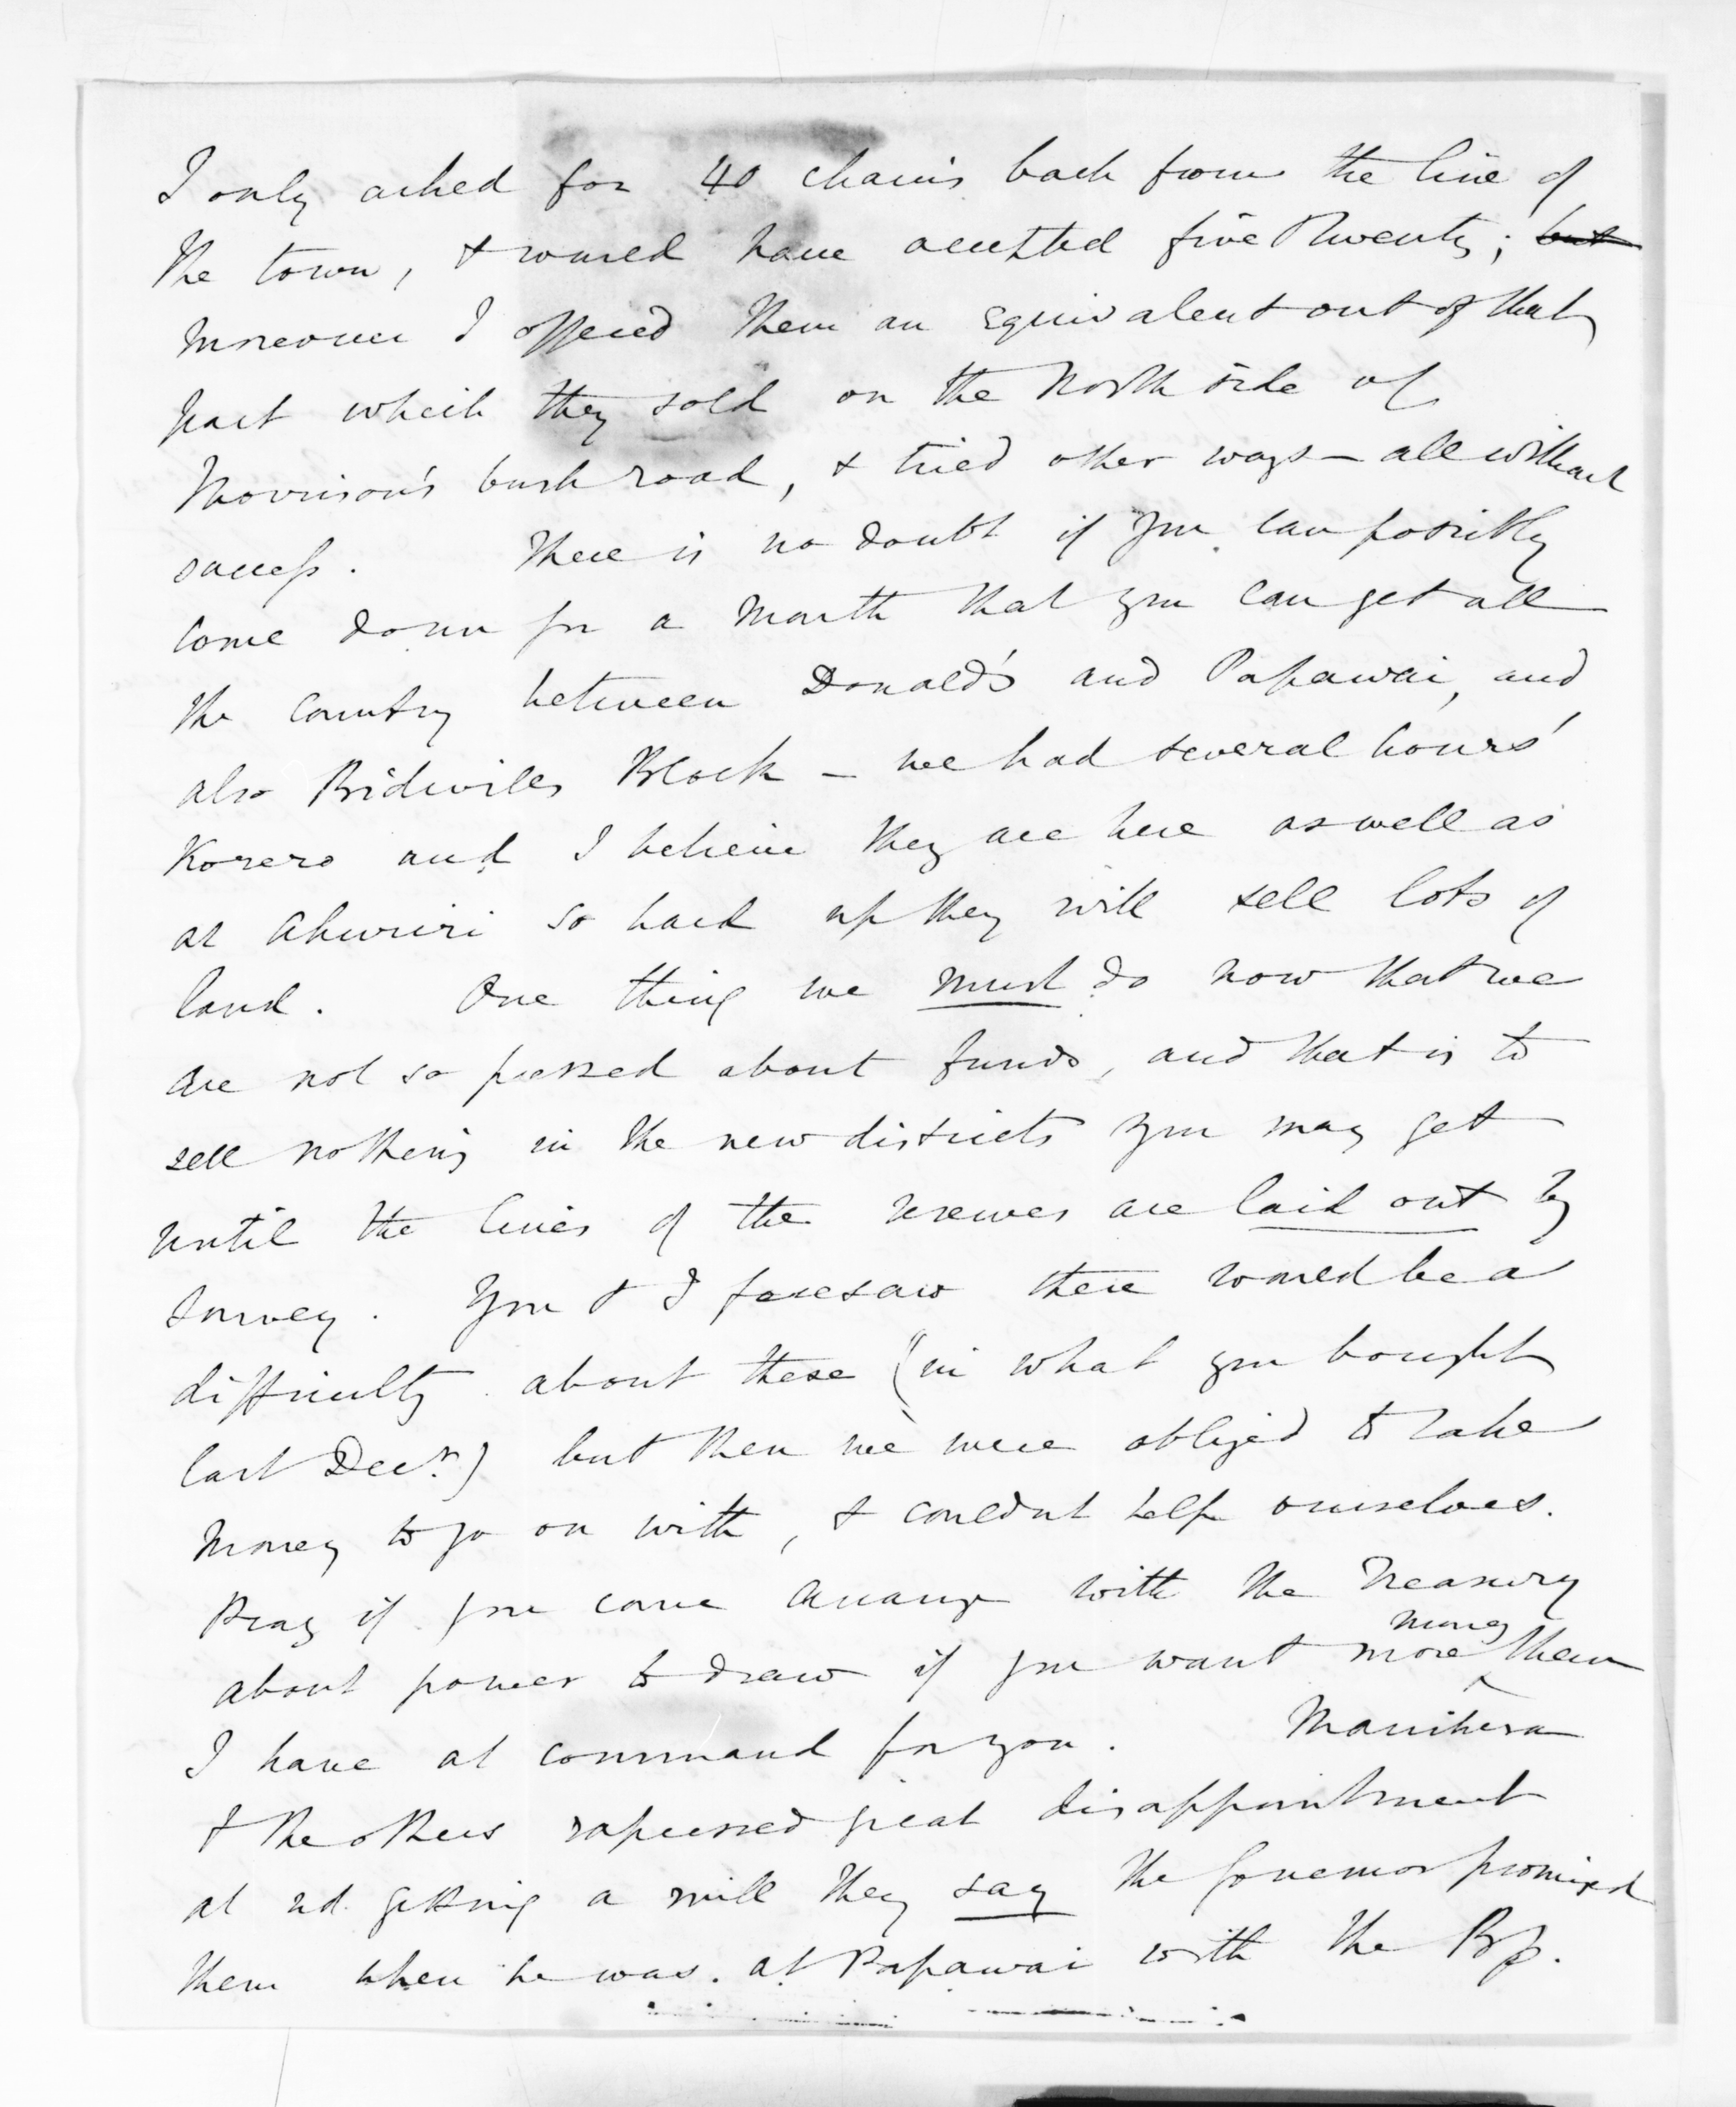 I only asked for 40 chains back from the line of
the town, & would have accepted five & twenty; but
moreover I offered them an equivalent out of that
part which they sold on the North side of
Morrison's bush road, & tried other ways – all without
success. There is no doubt if you can possibly
come down for a month that you can get all
the country between Donald's and Papawai, and
also Bidwill's Block – we had several hours'
Korero and I believe they are here as well as
at Ahuriri so hard up they will sell lots of
land. One thing we must do now that we
are not so pressed about funds, and that is to
sell nothing in the new districts you may get
until the lines of the reserves are laid out by
survey. You & I foresaw there would be a
difficulty about these (in what you bought
last Decr.) but then we were obliged to take
money to go on with, & couldn't help ourselves.
Pray if you come arrange with the Treasury
about power to draw if you want more money than
I have at command for you. Manihera
& the others expressed great disappointment
at not getting a mill they say the Governor promised
them when he was at Papawai with the Bp.